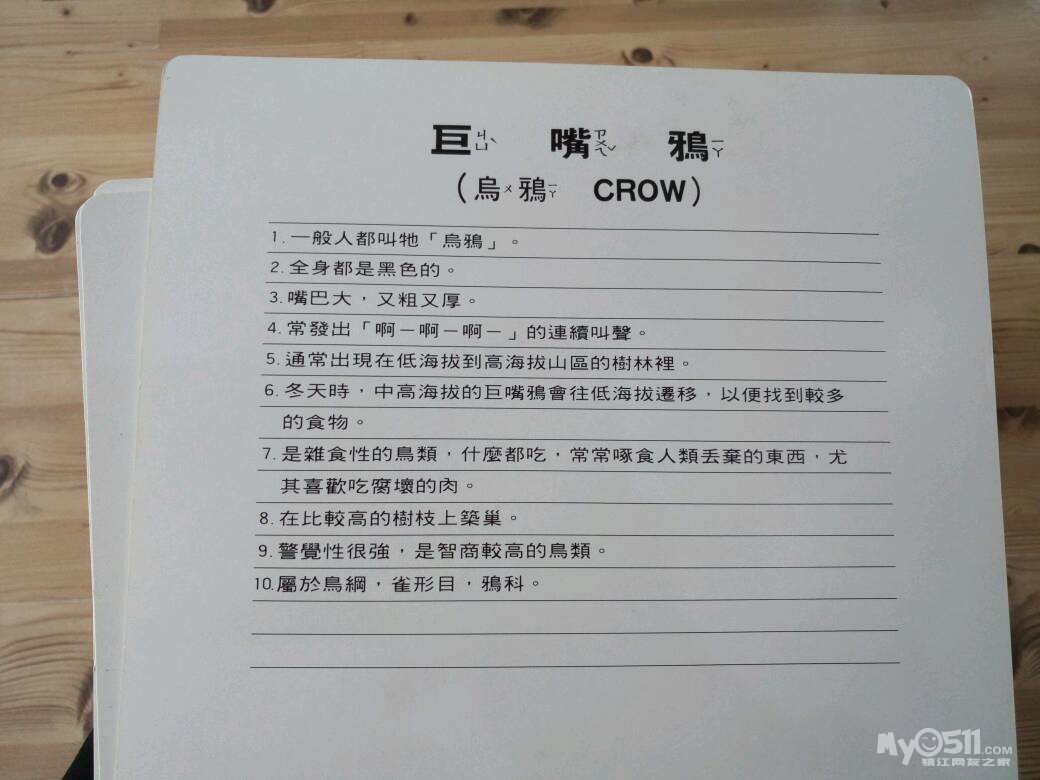 巨ㄐㄩˋ 嘴ㄗㄨㄟˇ 鴉ㄧㄚ
(烏ㄨ鴉ㄧㄚ CROW)
1. 一般人都叫牠「烏鴉」。
2. 全身都是黑色的。
3. 嘴巴大，又粗又厚。
4. 常發出「啊－啊－啊－」的連續叫聲。
5. 通常出現在低海拔到高海拔山區的樹林裡。
6. 冬天時，中高海拔的巨嘴鴉會往低海拔遷移，以便找到較多
的食物。
7. 是雜食性的鳥類，什麼都吃，常常啄食人類丟棄的東西，尤
其喜歡吃腐壞的肉。
8. 在比較高的樹枝上築巢。
9. 警覺性很強，是智商較高的鳥類。
10. 屬於鳥綱，雀形目，鴉科。
My0511.COM
镇江网友之家